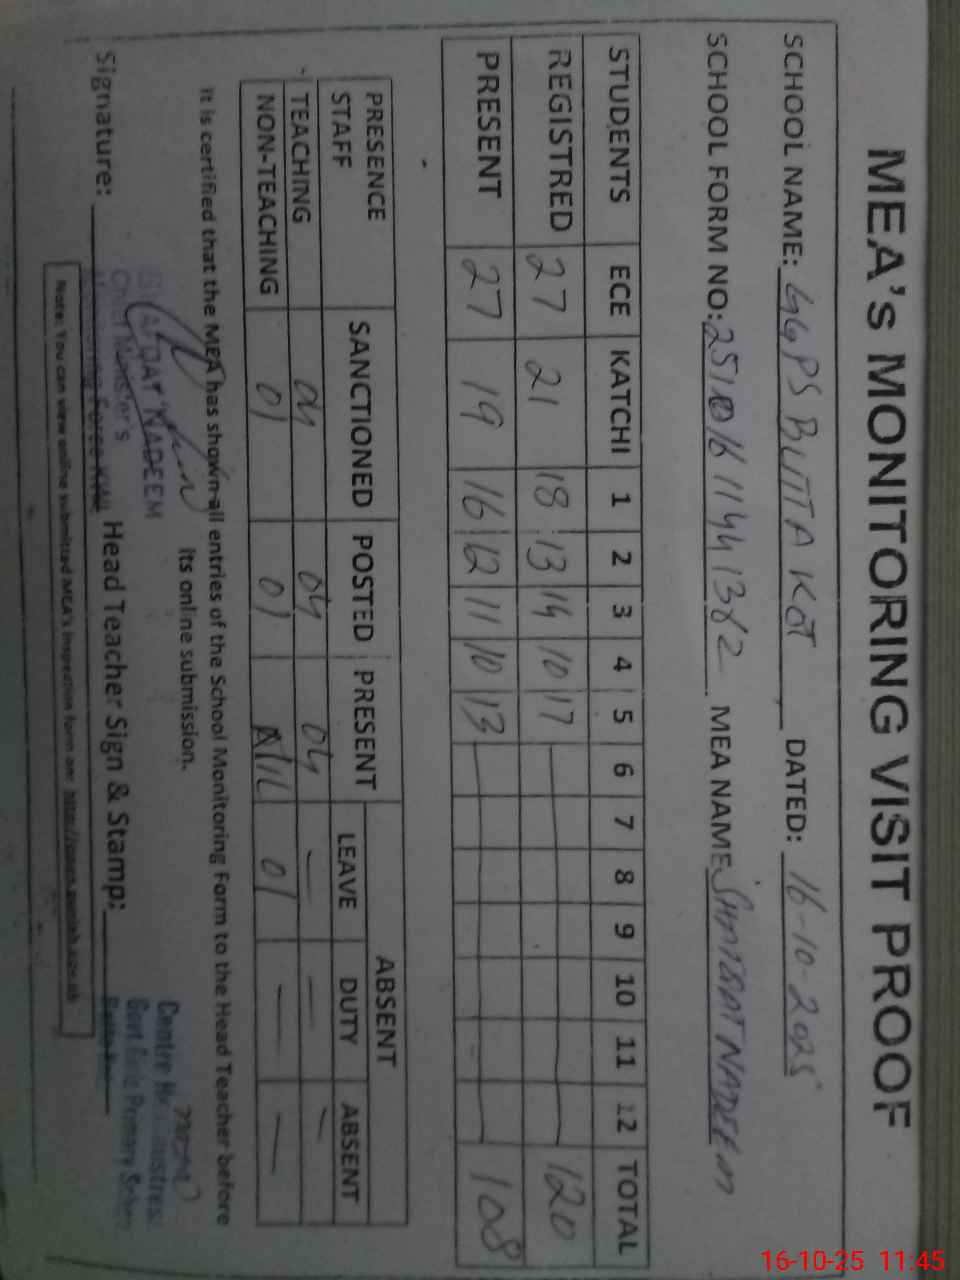 MEA's MONITORING VISIT PROOF
SCHOOL NAME: GGPS BUTTA KOT DATED: 16-10-2025
SCHOOL FORM NO: MEA NAME NADEEM
STUDENTS ECE KATCHI 1 2 3 4 5 6 7 8 9 10 11 12 TOTAL
REGISTRED 27 21 18 13 14 10 17 120
PRESENT 27 19 16 12 11 10 13 108
PRESENCE STAFF SANCTIONED POSTED PRESENT ABSENT
LEAVE DUTY ABSENT
TEACHING 04 04 04 — — —
NON-TEACHING 01 01 Nil 01 — —
It is certified that the MEA has shown all entries of the School Monitoring Form to the Head Teacher before
its online submission.
NADEEM
Chief Minister's
Monitoring Force
Signature: Head Teacher Sign & Stamp:
Centre
Govt Girls Primary
Note: You can view online submitted MEA's inspection form on:
16-10-25 11:45